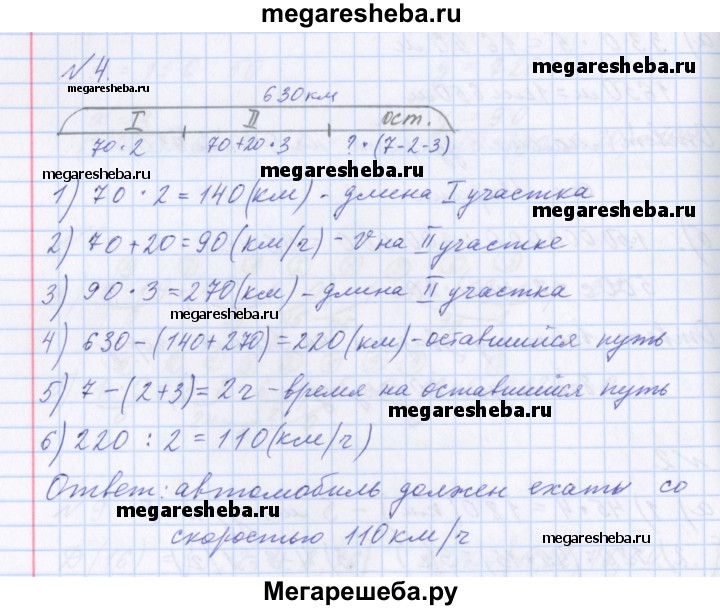 megaresheba.ru
№4.
megaresheba.ru
megaresheba.ru
630км
I II ост.
70·2 70+20·3 ?·(7-2-3)
megaresheba.ru
megaresheba.ru
1) 70 · 2 = 140(км) - длина I участка
megaresheba.ru
2) 70+20=90(км/ч) - V на II участке
3) 90 · 3 = 270(км) - длина II участка
megaresheba.ru
4) 630-(140+270)=220(км)-оставшийся путь
5) 7-(2+3)=2ч -время на оставшийся путь
megaresheba.ru
6) 220 : 2 = 110(км/ч)
Ответ: автомобиль должен ехать со
megaresheba.ru
скоростью 110км/ч
megaresheba.ru
Мегарешеба.ру